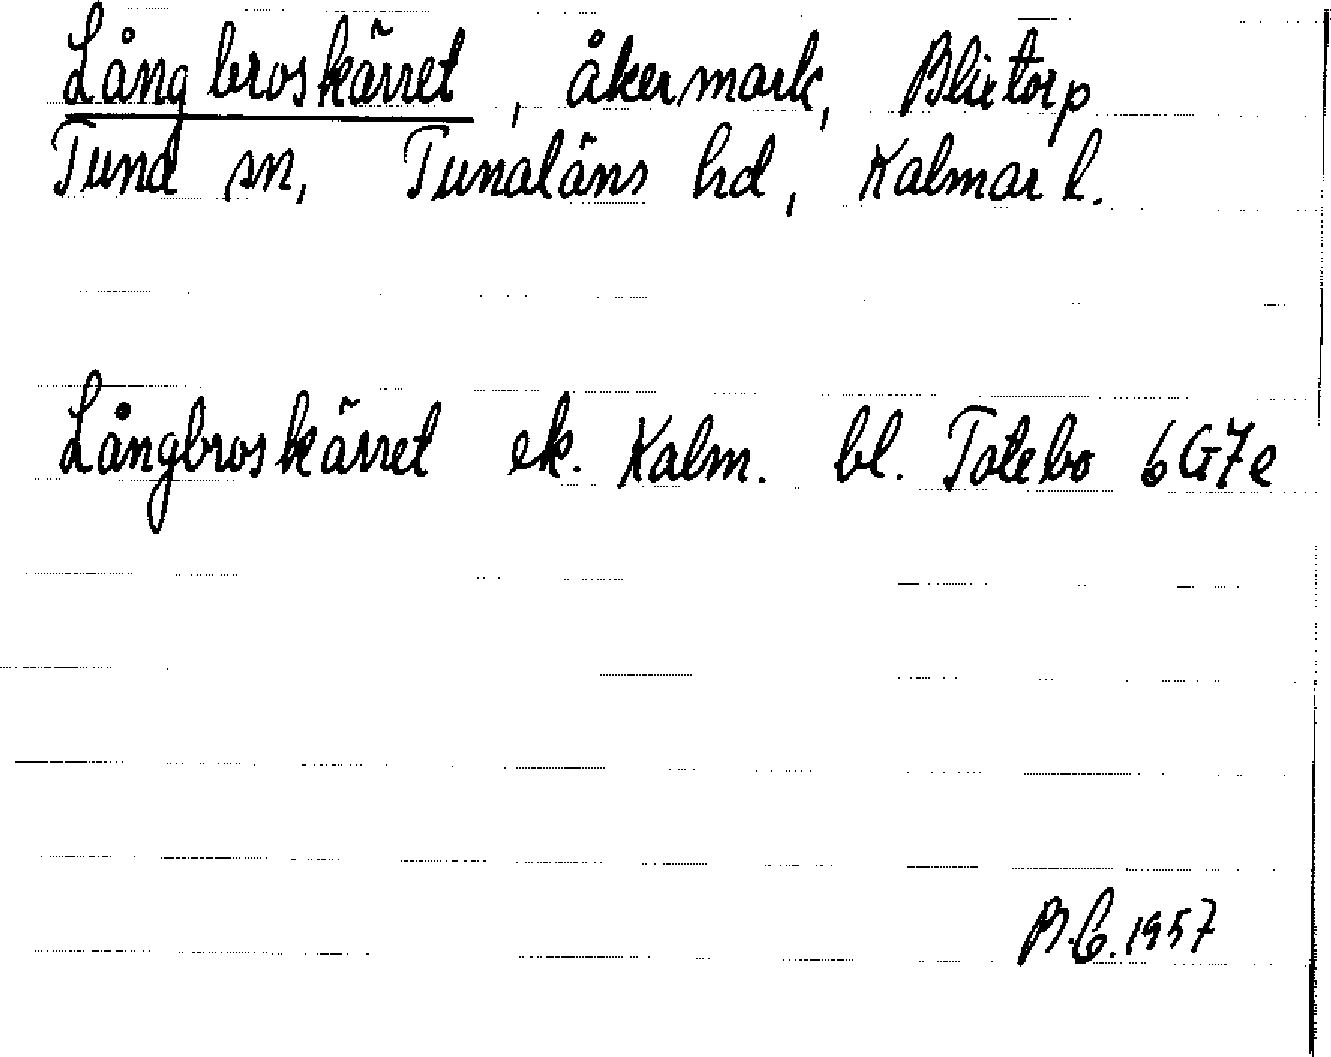 Långbroskärret, åkermark, Blietorp
Tuna sn, Tunaläns hd, Kalmar l.
Långbroskärret ek. Kalm. bl. Totebo 6G7e
B.C. 1957